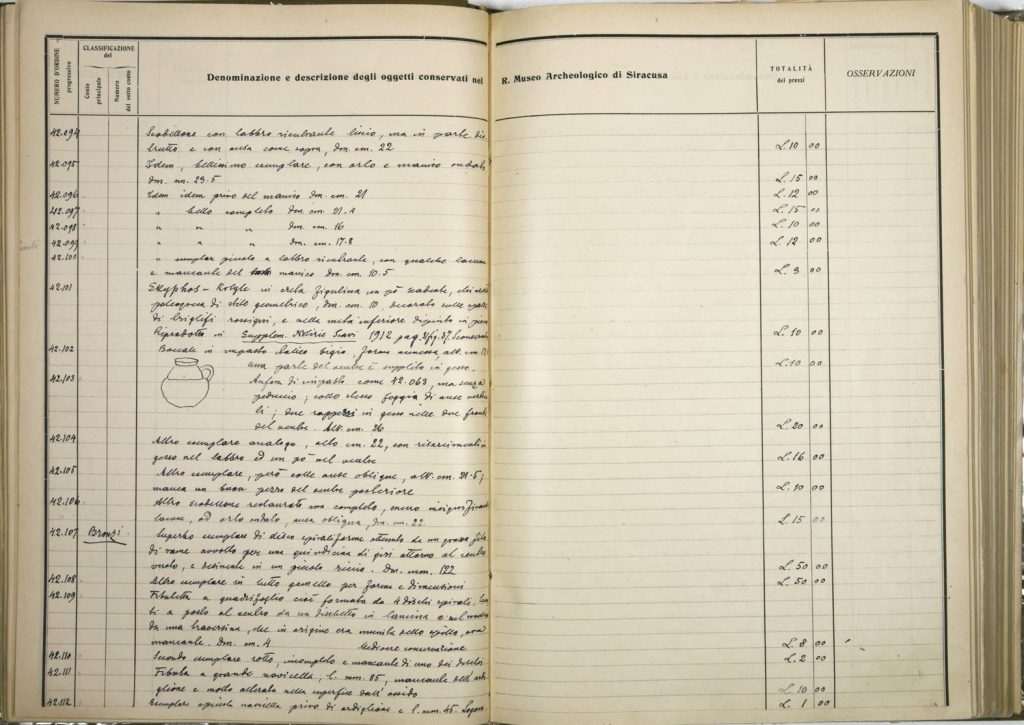 NUMERO D'ORDINE progressivo
CLASSIFICAZIONE del
Conto principale
Numero del sotto conto
Denominazione e descrizione degli oggetti conservati nel R. Museo Archeologico di Siracusa
TOTALITÀ dei prezzi
OSSERVAZIONI
42.094 Scodellone con labbro rientrante liscio, ma in parte dis
trutto e con ansa come sopra, dm. cm. 22 L. 10 00
42.095 Idem, bellissimo esemplare, con orlo e manico ondati
dm. cm. 23.5 L. 15 00
42.096 Idem idem privo del manico dm. cm. 21 L. 12 00
42.097 " bello completo dm. cm. 21.4 L. 15 00
42.098 " " " dm. cm. 16 L. 10 00
42.099 " " " dm. cm. 17.8 L. 12 00
42.100 " esemplar piccolo a labbro rientrante, con qualche lacuna
e mancante del manico dm. cm. 10.5 L. 3 00
42.101 Skyphos-Kotyle in creta figulina un pò scadente,
di stile geometrico, dm. cm. 10, decorato sulle
di triglifi rossigni, e nella metà inferiore dipinto in
Riprodotto in Supplem. Notizie Scavi 1912 pag. fig. L. 10 00
42.102 Boccale in impasto bigio, forma annessa, alt. cm. 12
una parte del ventre è supplita in gesso. L. 10 00
42.103 Anfora di impasto come 42.063, ma senza
peduccio; collo stessa foggia di anse verti
li; due rappezzi in gesso nelle due fronti
del ventre. Alt. cm. 26 L. 20 00
42.104 Altro esemplare analogo, alto cm. 22, con risarcimenti in
gesso nel labbro ed un pò nel ventre L. 16 00
42.105 Altro esemplare, però colle anse oblique, alt. cm. 21.5;
manca un buon pezzo del ventre posteriore L. 10 00
42.106 Altro scodellone restaurato ma completo, meno insignificanti
lacune, ad orlo ondato, ansa obliqua, dm. cm. 22 L. 15 00
42.107 Bronzi. Superbo esemplare di disco spiraliforme ottenuto da un grosso filo
di rame avvolto per una quindicina di giri attorno al centro
vuoto, e desinente in un piccolo riccio. Dm. mm. 122 L. 50 00
42.108 Altro esemplare in tutto gemello per forma e dimensioni L. 50 00
42.109 Fibuletta a quadrifoglio cioè formata da 4 dischi spirali,
ti a posto al centro da un dischetto in lamina e nel rovescio
da una traversina, che in origine era munita dello spillo, ora
mancante. Dm. cm. 4 Mediocre conservazione L. 8 00
42.110 Secondo esemplare rotto, incompleto e mancante di uno dei dischi L. 2 00
42.111 Fibula a grande navicella; l. mm. 85, mancante dell'ardi
glione e molto alterata nella superficie dall'ossido L. 10 00
42.112 Esemplare a piccola navicella privo di ardiglione e l. mm. 45. L. 1 00